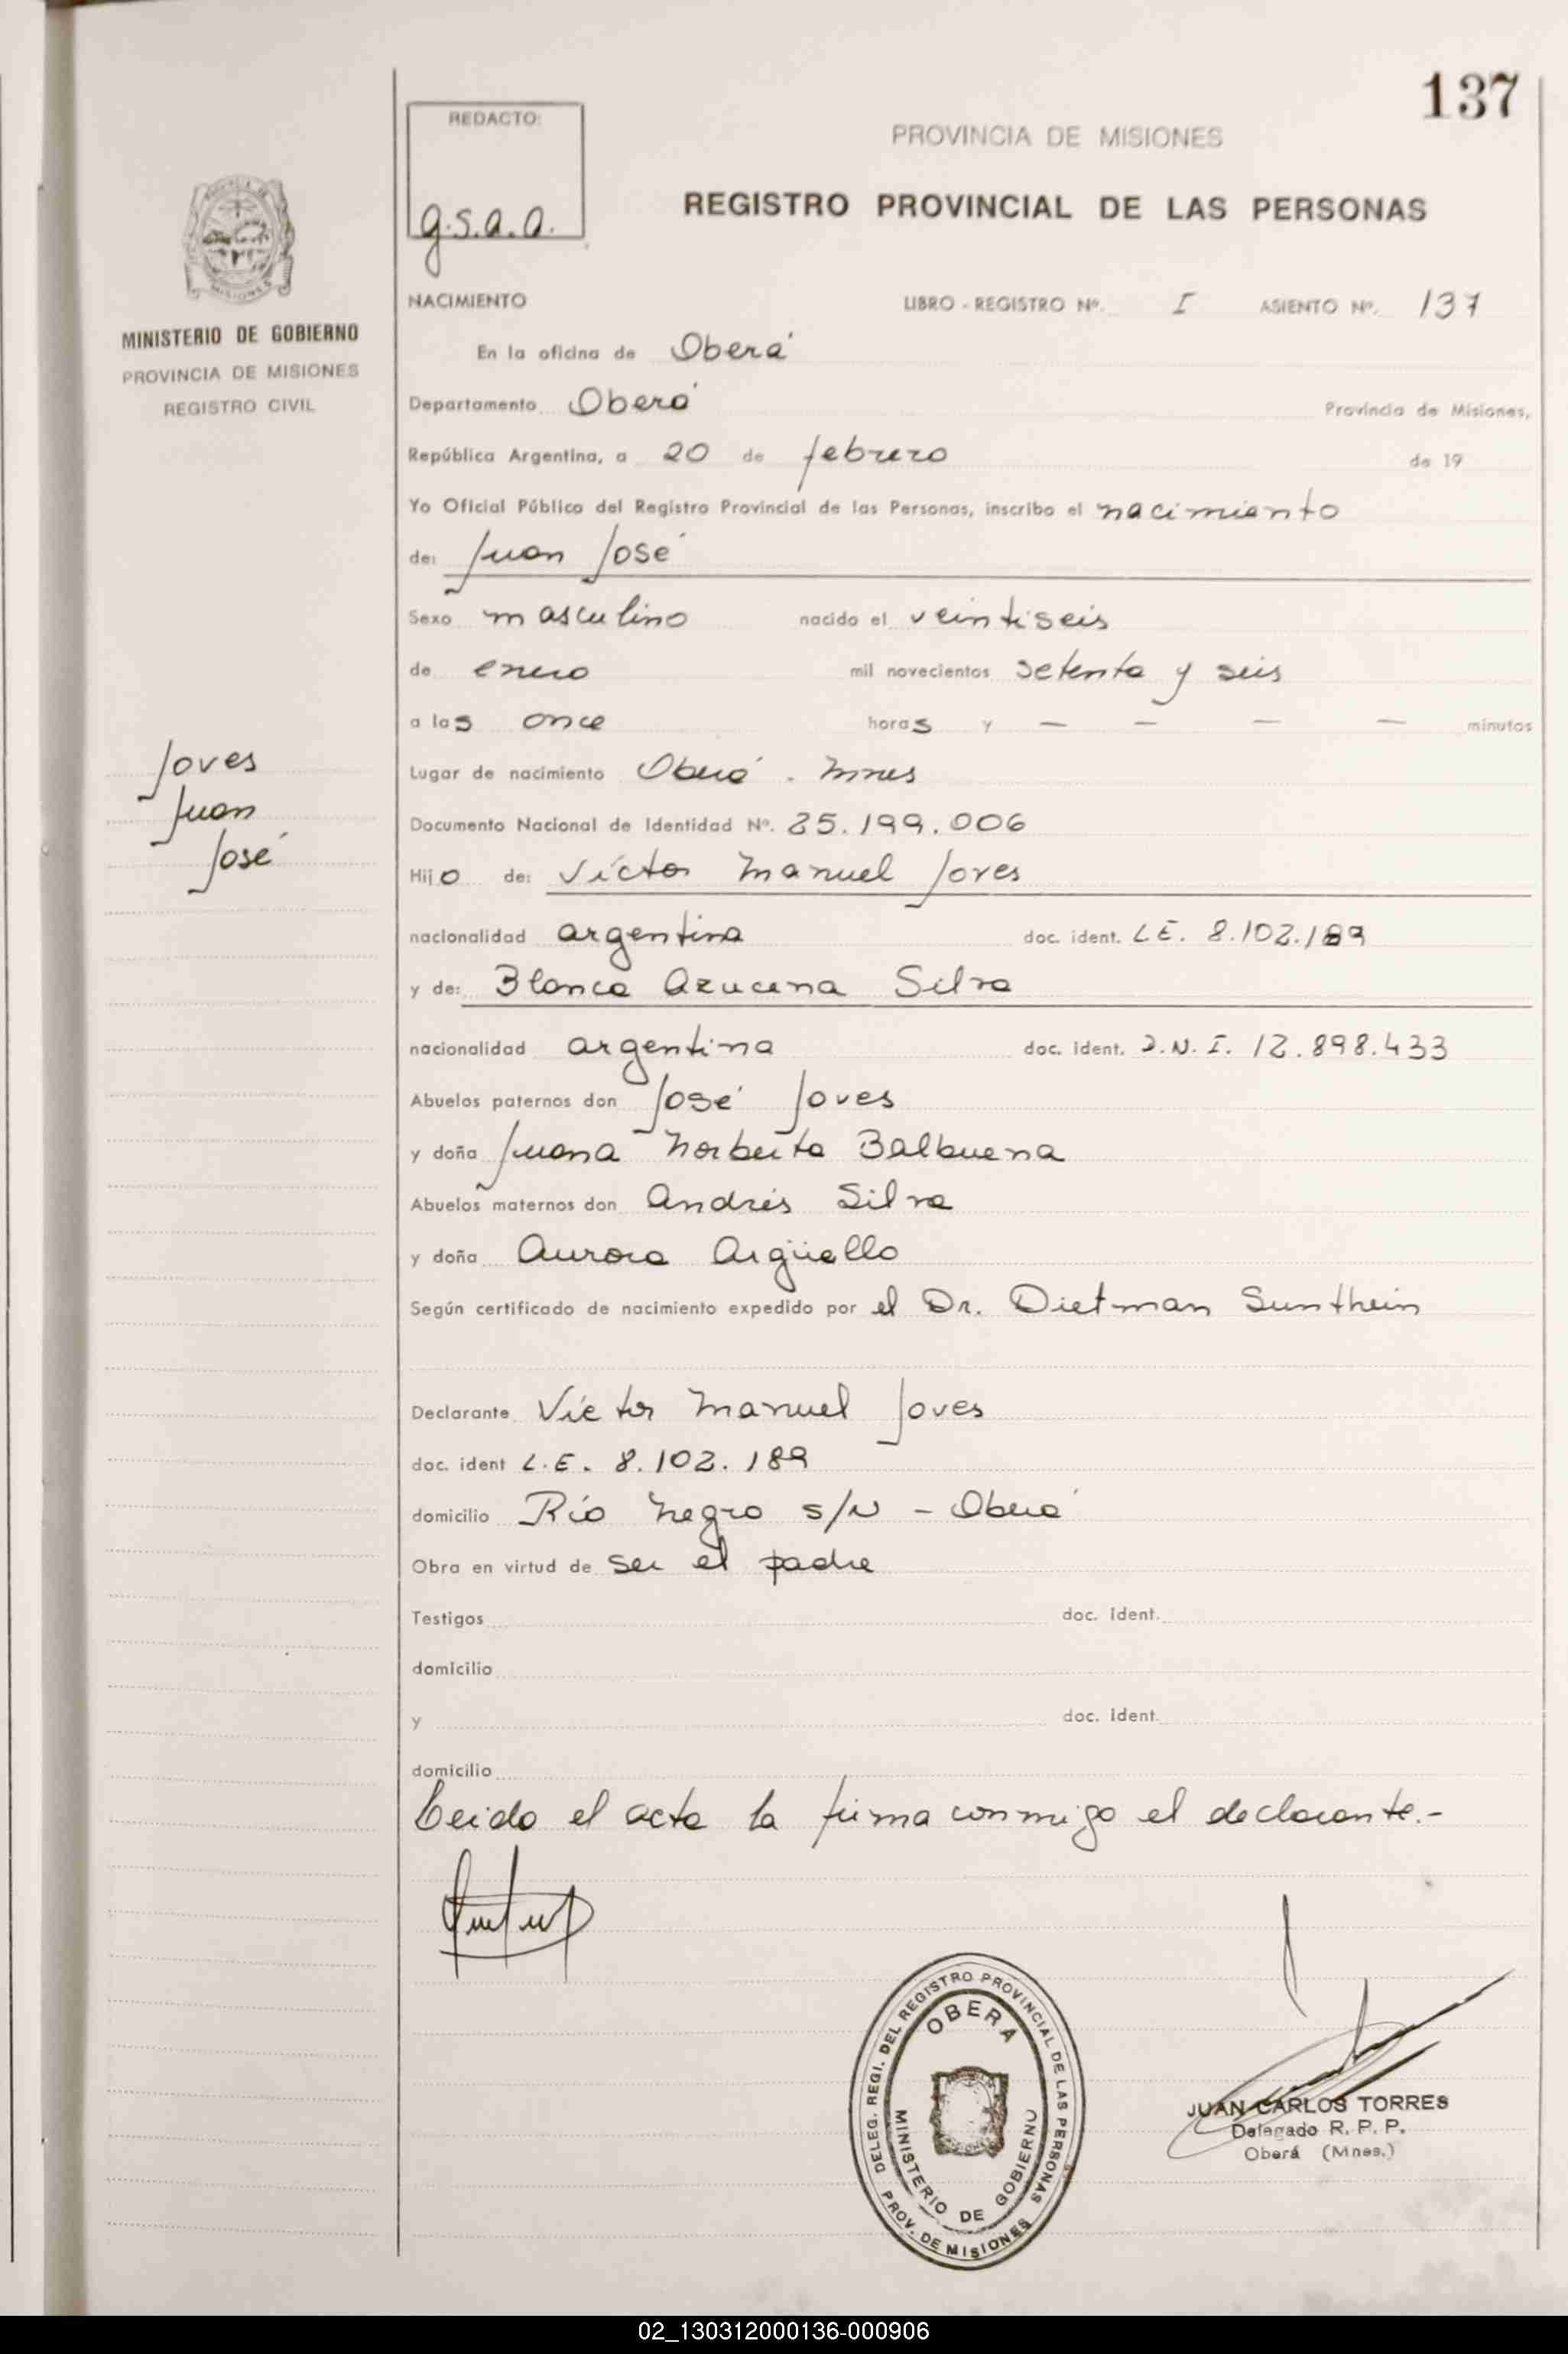 137
REDACTO:
g.s.a.a.
PROVINCIA DE MISIONES
REGISTRO PROVINCIAL DE LAS PERSONAS
MINISTERIO DE GOBIERNO
PROVINCIA DE MISIONES
REGISTRO CIVIL
NACIMIENTO LIBRO - REGISTRO Nº. I ASIENTO Nº. 137
En la oficina de Oberá
Departamento Oberá Provincia de Misiones,
República Argentina, a 20 de febrero de 19
Yo Oficial Público del Registro Provincial de las Personas, inscribo el nacimiento
de: Juan José
Sexo masculino nacido el veintiseis
de enero mil novecientos setenta y seis
a las once horas y — — — — minutos
Joves
Juan
José
Lugar de nacimiento Oberá - Mnes
Documento Nacional de Identidad Nº. 25.199.006
Hijo de: Víctor Manuel Joves
nacionalidad argentina doc. ident. L.E. 8.102.189
y de: Blanca Azucena Silva
nacionalidad argentina doc. ident. D.N.I. 12.898.433
Abuelos paternos don José Joves
y doña Juana Norberta Balbuena
Abuelos maternos don Andrés Silva
y doña Aurora Argüello
Según certificado de nacimiento expedido por el Dr. Dietman Sunthein
Declarante Víctor Manuel Joves
doc. ident L.E. 8.102.189
domicilio Río Negro s/N - Oberá
Obra en virtud de ser el padre
Testigos doc. ident.
domicilio
y doc. ident.
domicilio
Leido el acta la firma conmigo el declarante.-
DELEG. REGI. DEL REGISTRO PROVINCIAL DE LAS PERSONAS
OBERA
MINISTERIO DE GOBIERNO
PROV. DE MISIONES
JUAN CARLOS TORRES
Delegado R. P. P.
Oberá (Mnes.)
02_130312000136-000906